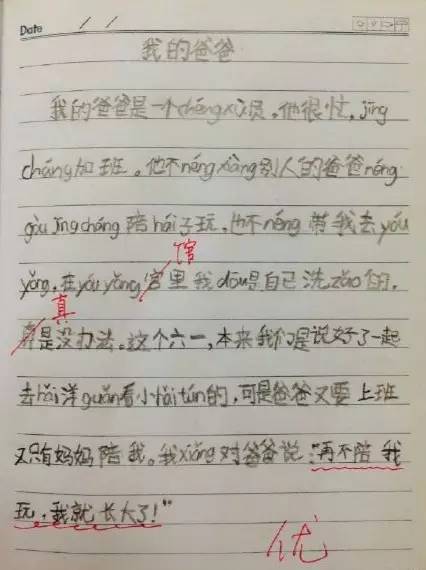 Date / /
我的爸爸
我的爸爸是一个chéngxù员。他很忙，jīng
cháng加班。他不néng xiàng别人的爸爸néng
gòu jīngcháng 陪hái子玩，也不néng 带我去yóu
馆
yǒng，在yóuyǒng宫里我dōu是自己洗zǎo的，
真
是没办法。这个六一，本来我们是说好了一起
去hǎi洋guǎn看小hǎi tún的，可是爸爸又要上班
又只有妈妈陪我。我xiǎng对爸爸说："再不陪我
玩，我就长大了！"
优